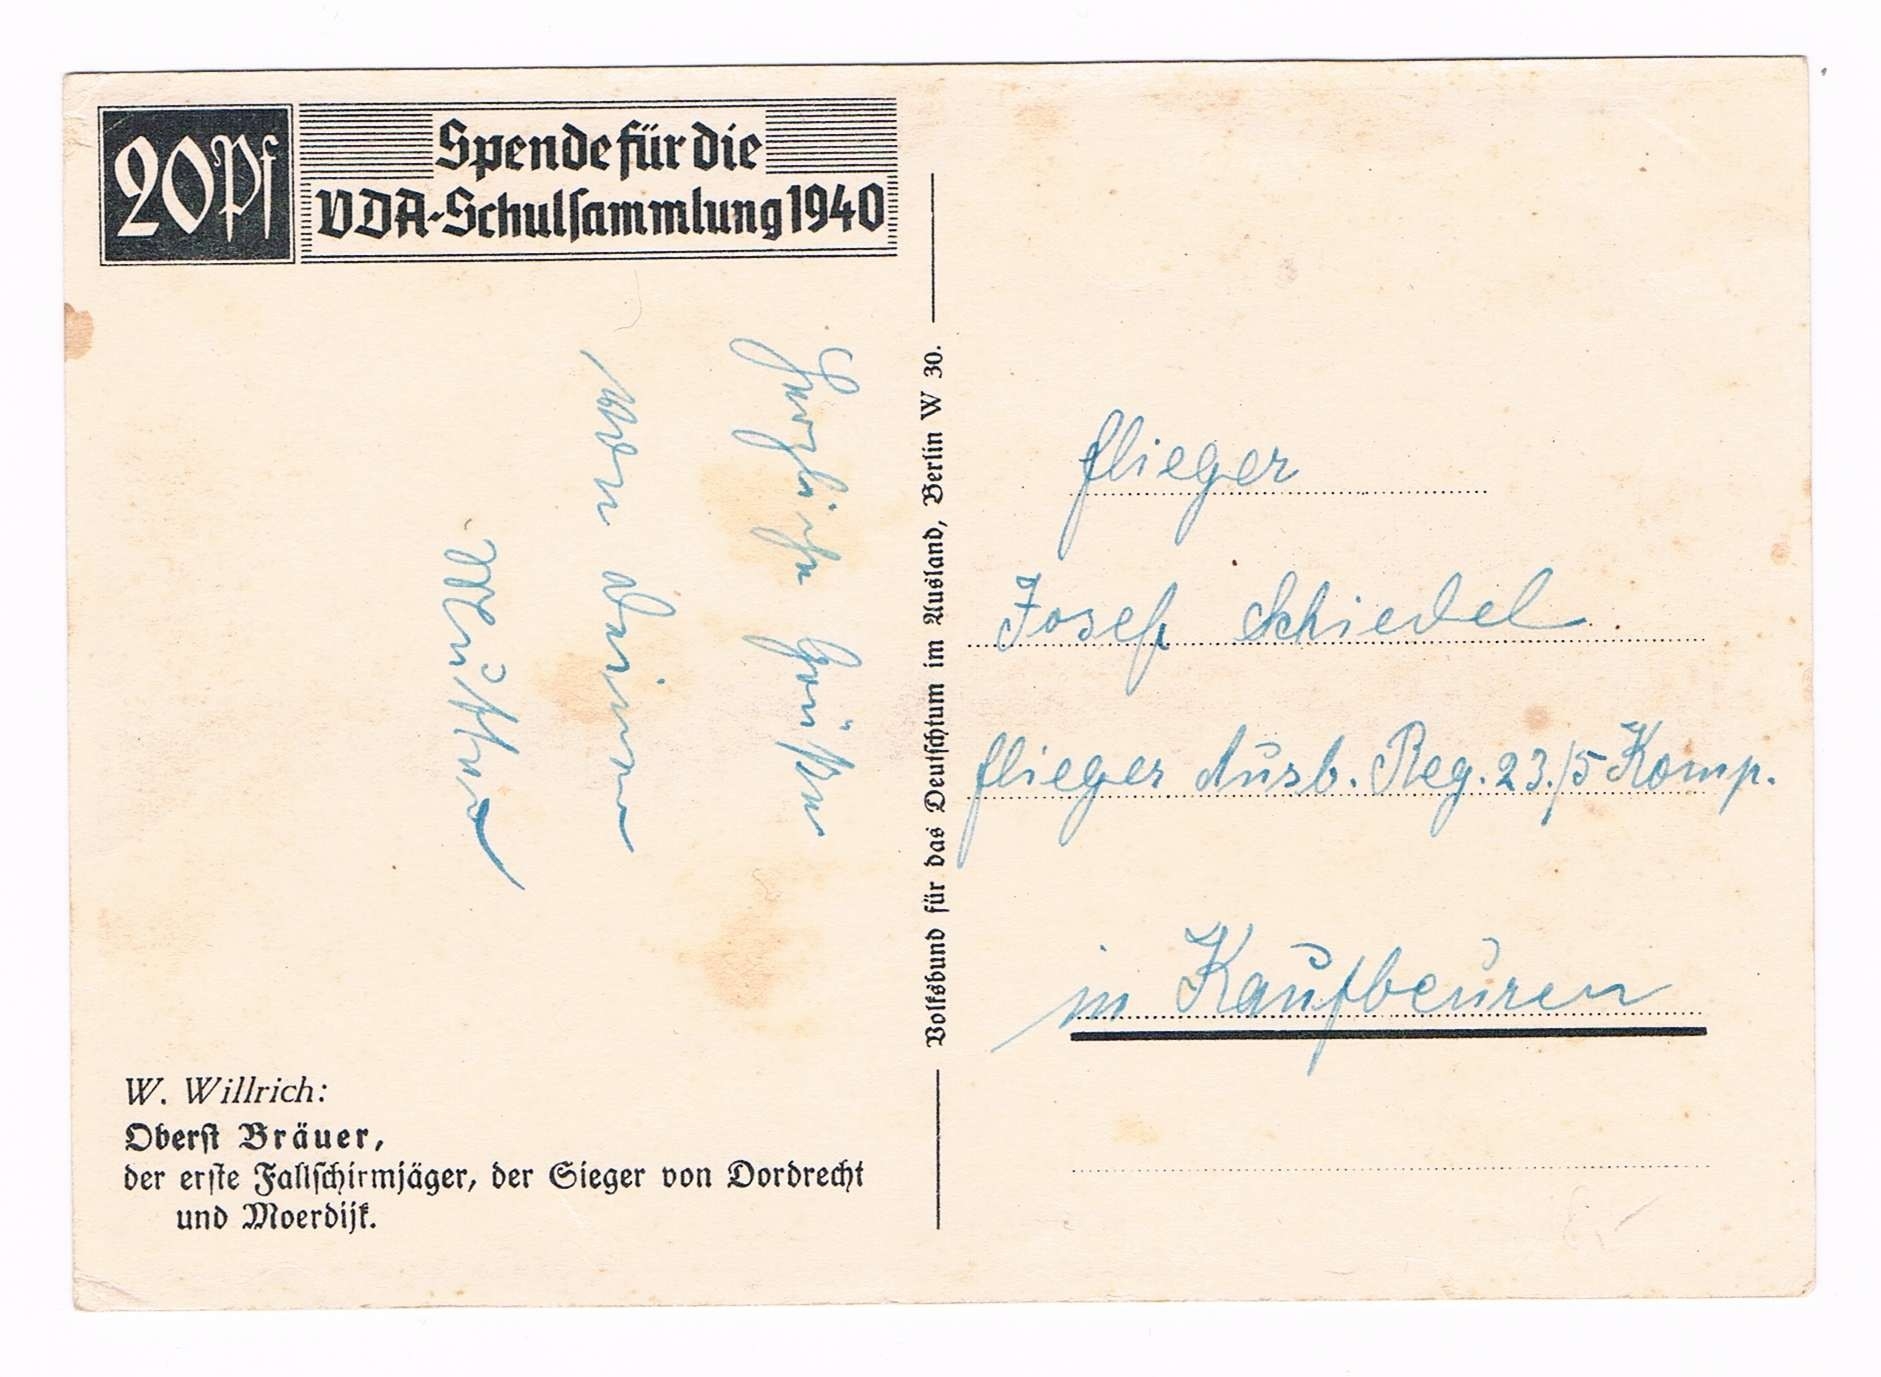 20 Pf
Spende für die
VDA-Schulsammlung 1940
Herzliche Grüße
von deiner
Mutter
W. Willrich:
Oberst Bräuer,
der erste Fallschirmjäger, der Sieger von Dordrecht
und Moerdijk.
Volksbund für das Deutschtum im Ausland, Berlin W 30.
Flieger
Josef Schiedel
Flieger Ausb. Reg. 23./5 Komp.
in Kaufbeuren